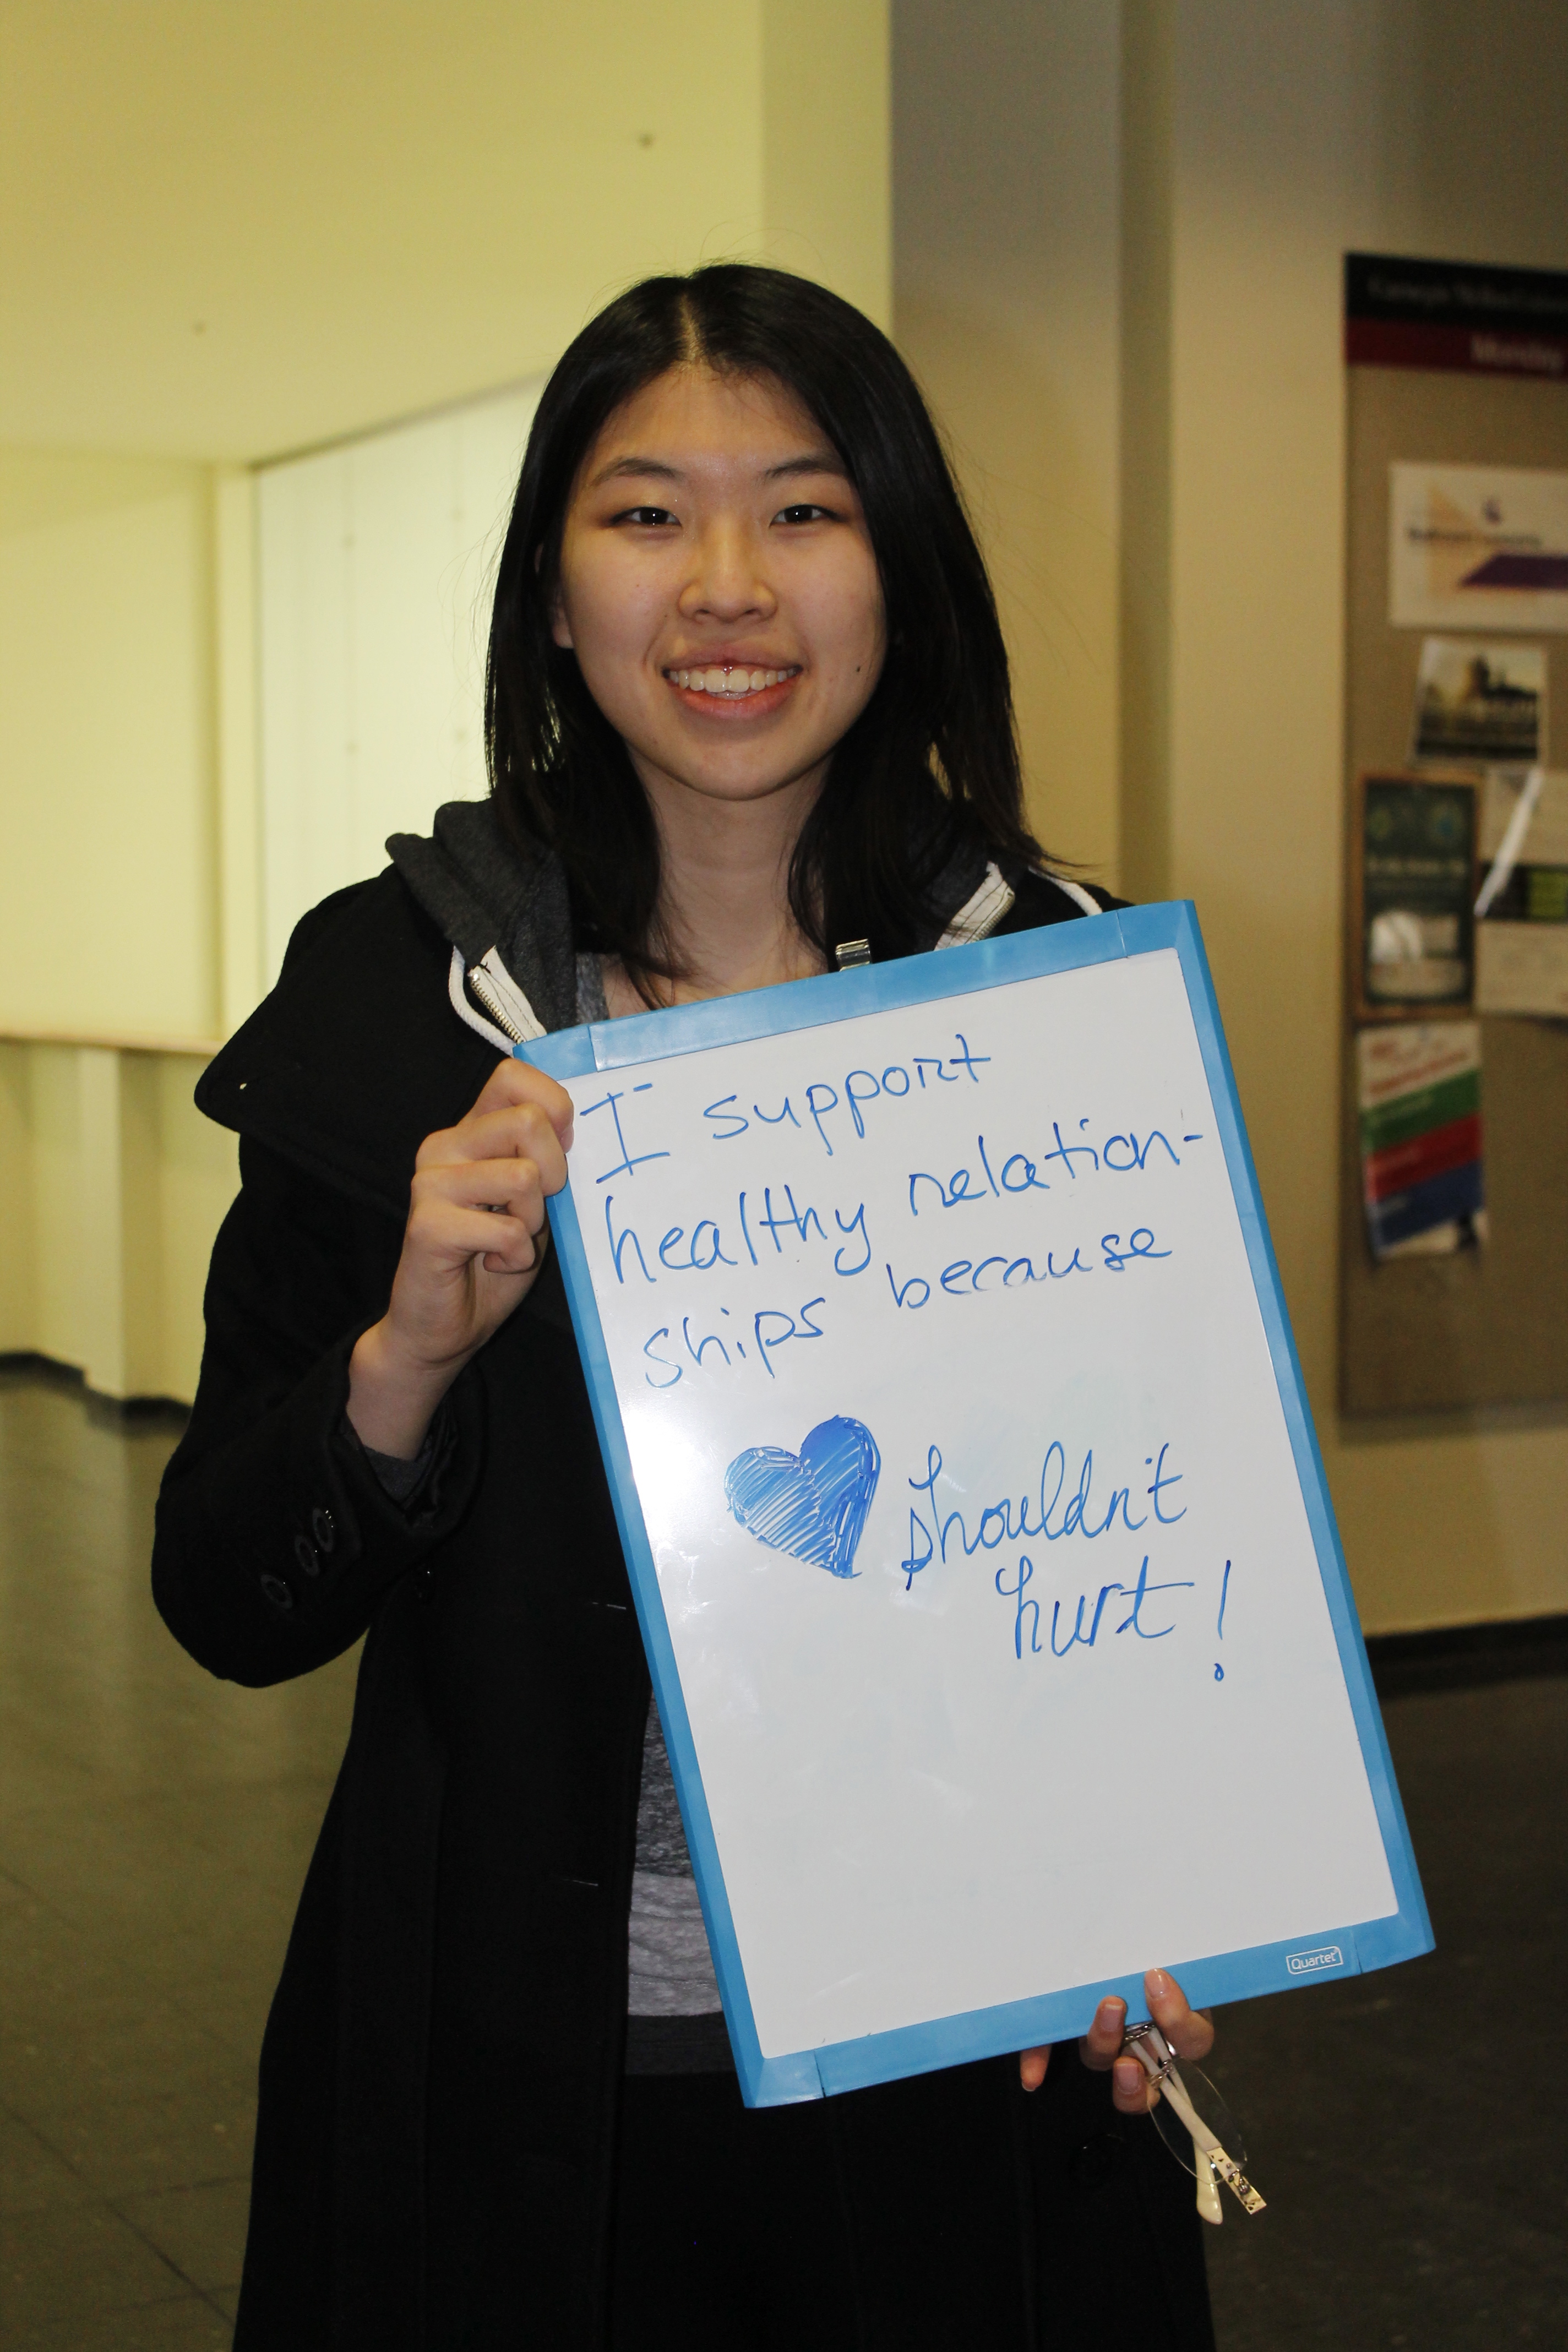 I support
healthy relation-
ships because
shouldn't
hurt!
Quartet
Carnegie Mellon
Monday